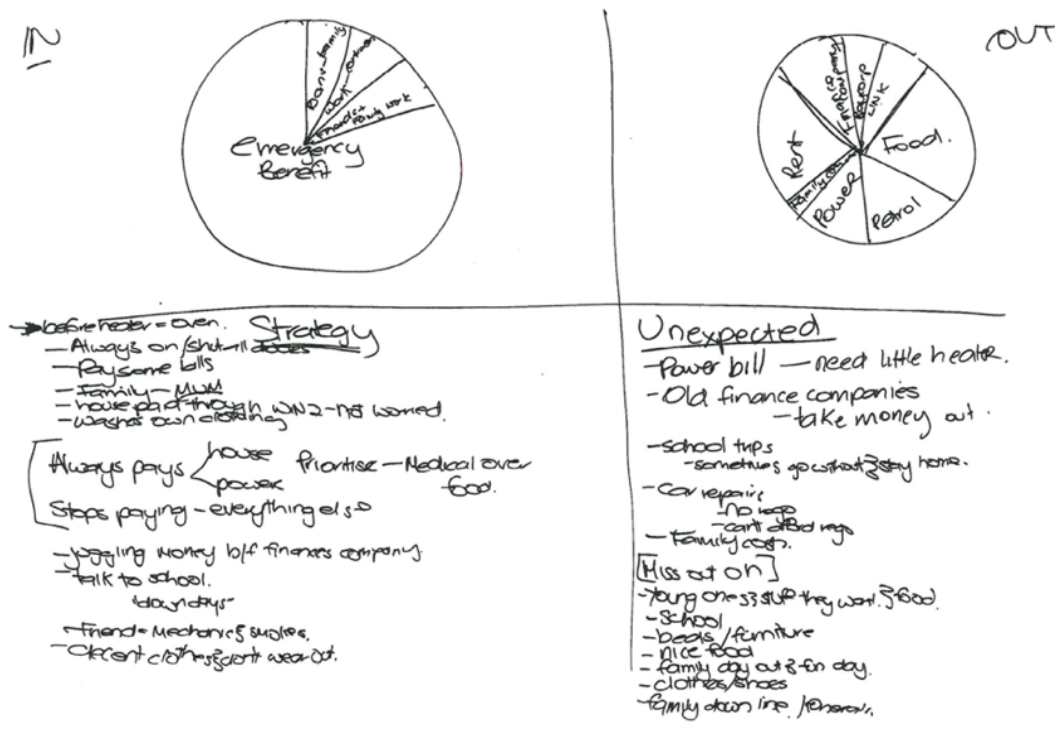 IN
Bank-family
Work-
work
Emergency
Benefit
OUT
Finance
company
LINK
Food.
Rent
Family
Power
Petrol
before heater = oven.
Strategy
- Always on / shut all doors
- Pay some bills
- Family - MUM
- house paid through WNZ - not worried.
- washes own clothing
Always pays
house
power
Prioritise - Medical over
food.
Stops paying - everything else
- juggling money b/f finances company
- talk to school.
"down days"
- Friend = Mechanic & smokes.
- Decent clothes & don't wear out.
Unexpected
- Power bill - need little heater.
- Old finance companies
- take money out.
- school trips
- sometimes go without & stay home.
- Car repairs
- no rego
- can't afford rego
- Family costs.
[Miss out on]
- Young ones & stuff they want. & food.
- School
- beds / furniture
- nice food
- family day out & fun day.
- clothes/shoes
- family down line /